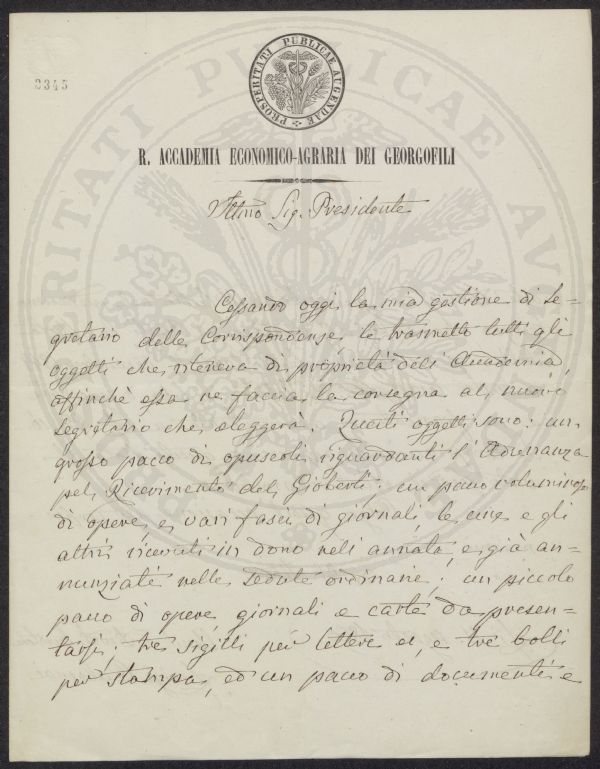 2345
PROSPERITATI PUBLICAE AUGENDAE
R. ACCADEMIA ECONOMICO-AGRARIA DEI GEORGOFILI
Illmo Sig. Presidente
Cessando oggi la mia gestione di Se-
gretario delle Corrispondenze, le trasmetto tutti gli
oggetti che riteneva di proprietà dell'Accademia,
affinchè essa ne faccia la consegna al nuovo
Segretario che eleggerà. Questi oggetti sono: un
grosso pacco di opuscoli riguardanti l'Adunanza
pel Ricevimento del Gioberti; un pacco voluminoso
di opere, e vari fasci di giornali, le une e gli
altri ricevuti in dono nell'annata, e già an-
nunziate nelle sedute ordinarie; un piccolo
pacco di opere, giornali e carte da presen-
tarsi; tre sigilli per lettere, e tre bolli
per stampa, ed un pacco di documenti e